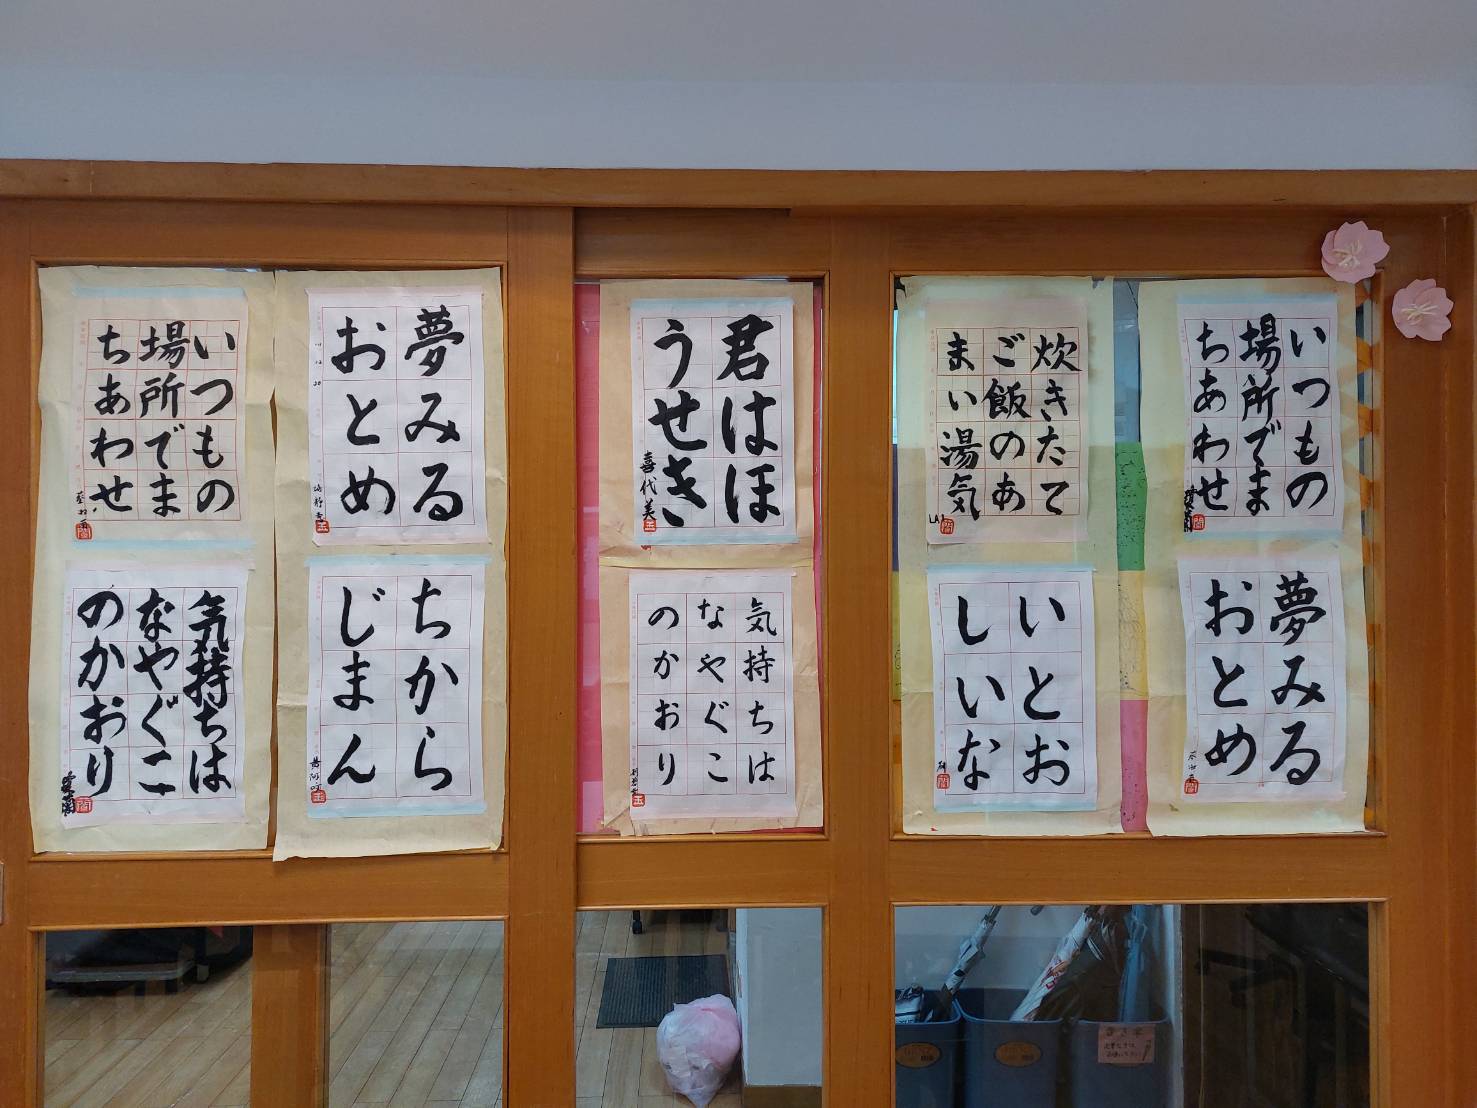 いつもの
場所でま
ちあわせ
夢みる
おとめ
君はほ
うせき
喜代美
炊きたて
ご飯のあ
まい湯気
いつもの
場所でま
ちあわせ
気持ちは
なやぐこ
のかおり
ちから
じまん
気持ちは
なやぐこ
のかおり
いとお
しいな
夢みる
おとめ